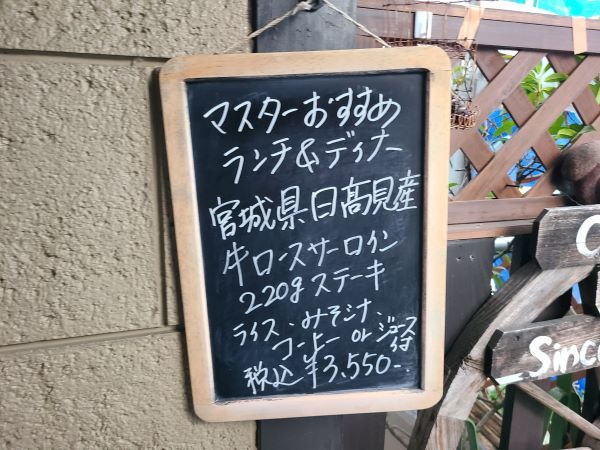 マスターおすすめ
ランチ&ディナー
宮城県日高見産
牛ロースサーロイン
220gステーキ
ライス・みそシナ・
コーヒー or ジュース付
税込 ¥3,550-
Sinc